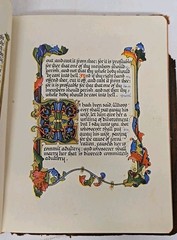 out and cast it from thee: for it is profitable
for thee that one of thy members should
perish, and not that thy whole body should
be cast into hell. And if thy right hand
offend thee, cut it off, and cast it from
thee: for it is profitable for thee that one of thy
members should perish, and not that thy
whole body should be cast into hell.
It hath been said, Whoso-
ever shall put away his
wife, let him give her a
writing of divorcement:
but I say unto you, that
whosoever shall put
away his wife,
saving for the
cause of forni-
cation, causeth her to
commit adultery: and whosoever shall
marry her that is divorced committeth
adultery.